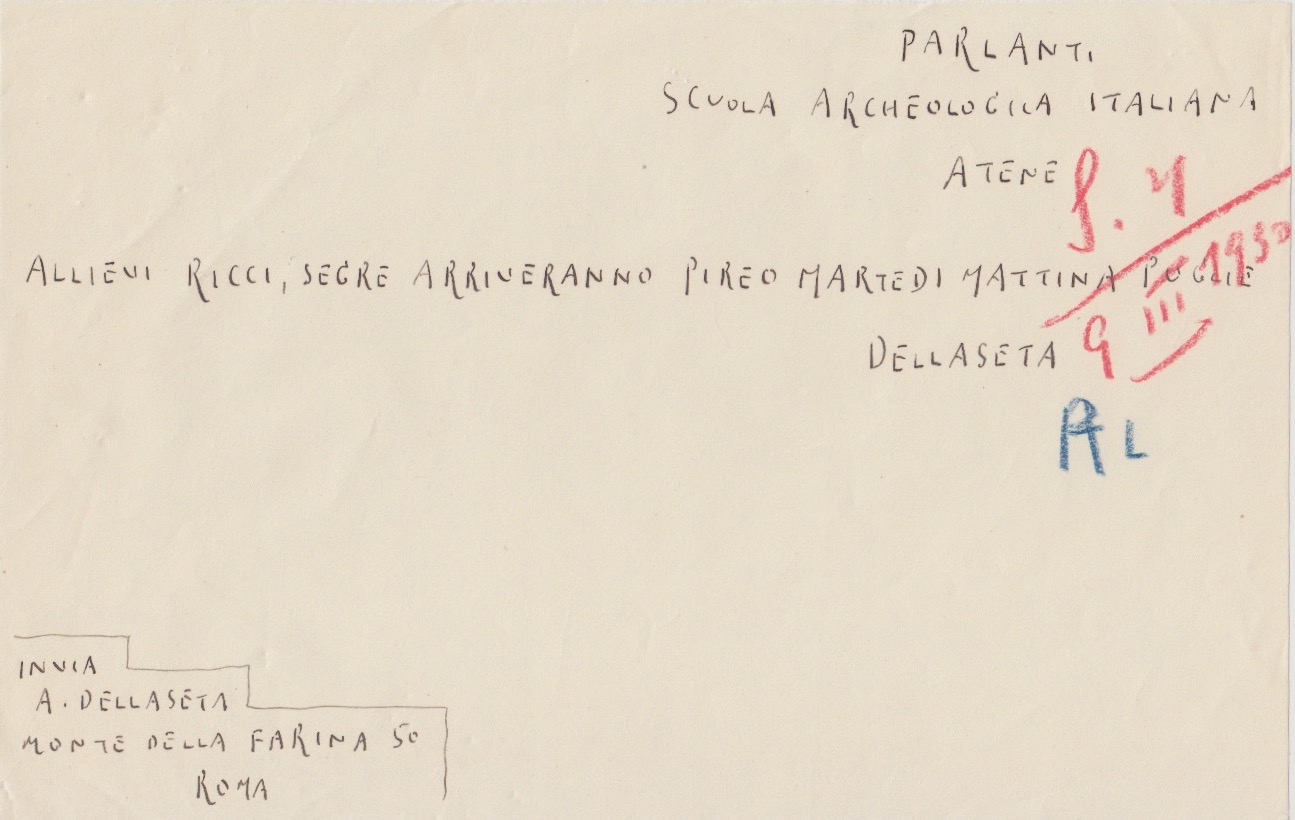 PARLANTI
SCUOLA ARCHEOLOGICA ITALIANA
ATENE
ALLIEVI RICCI, SEGRE ARRIVERANNO PIREO MARTEDI MATTINA PUGLIE
DELLASETA
9 III 1930
INVIA
A. DELLASETA
MONTE DELLA FARINA 50
ROMA